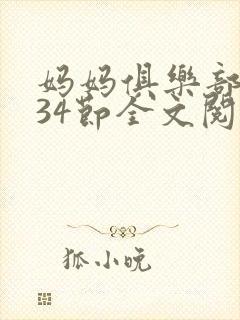 妈妈俱樂部
34節全文閱
狐小皖